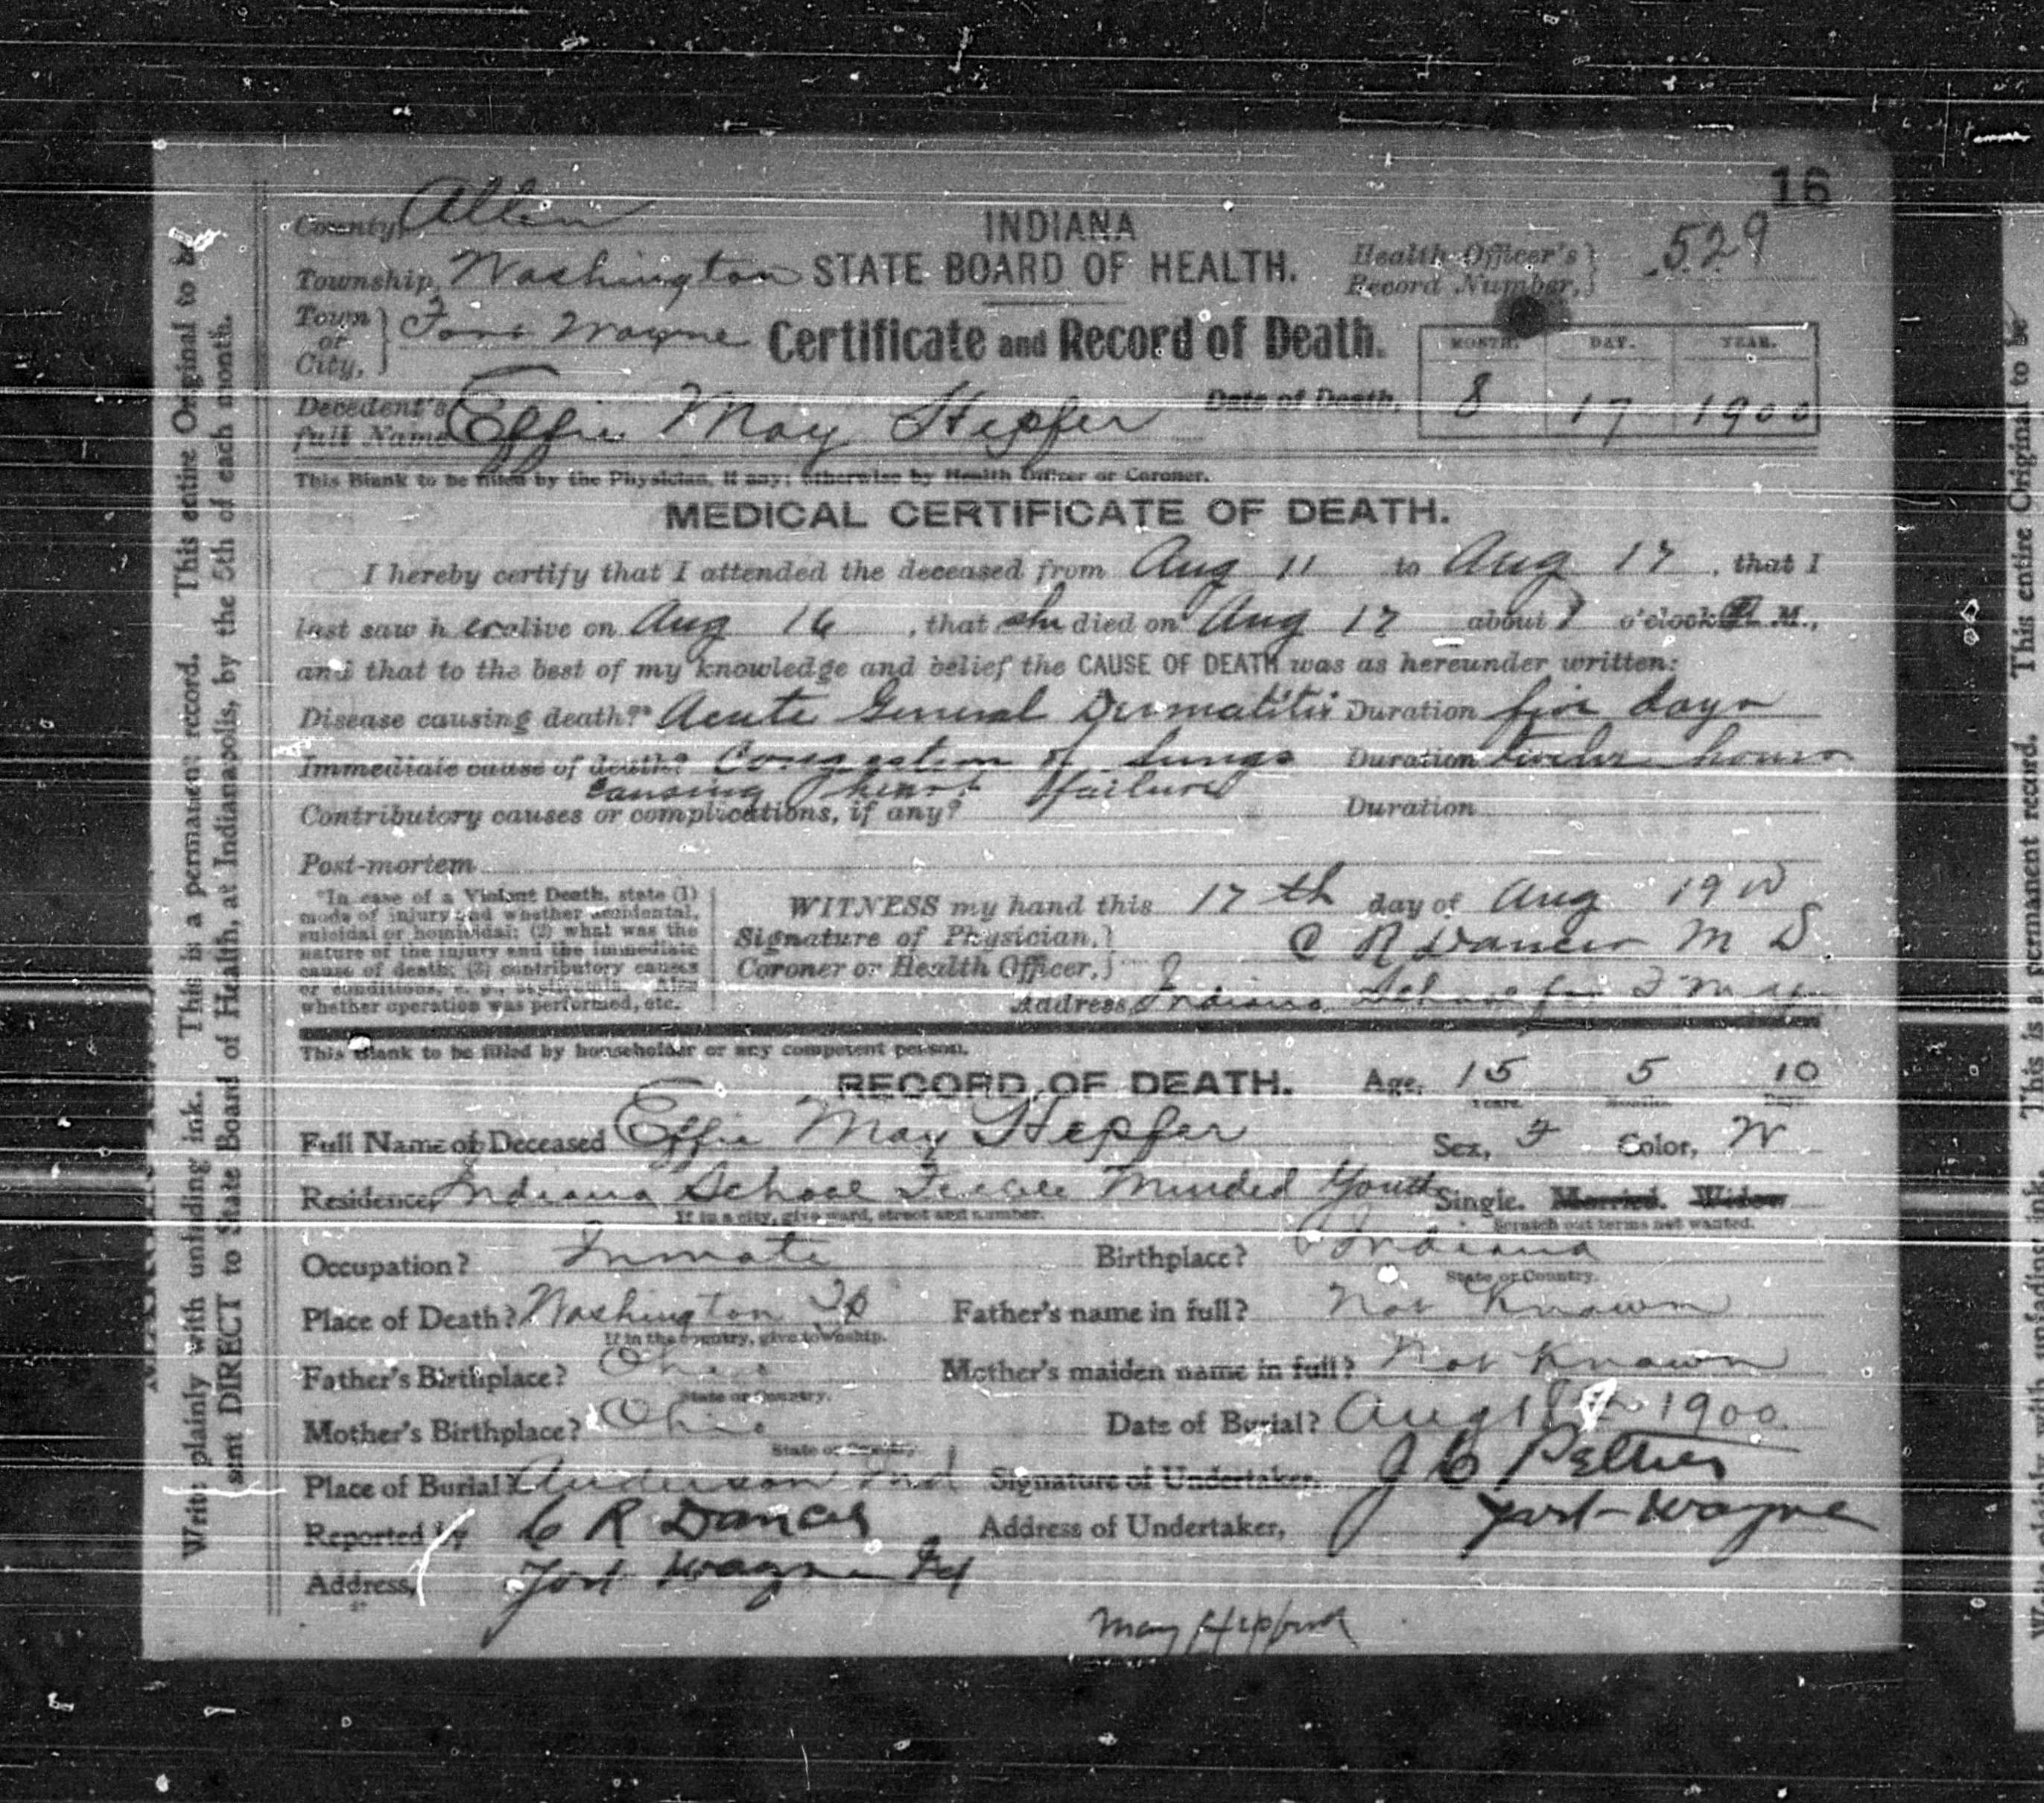 16
County, Allen
INDIANA
Township, Washington STATE BOARD OF HEALTH. Health Officer's Record Number, 529
Town or City, Fort Wayne Certificate and Record of Death.
MONTH. DAY. YEAR.
Decedent's full Name Effie May Hepfer Date of Death, 8 17 1900
This Blank to be filled by the Physician, if any; otherwise by Health Officer or Coroner.
MEDICAL CERTIFICATE OF DEATH.
I hereby certify that I attended the deceased from Aug 11 to Aug 17, that I
last saw h er alive on Aug 16, that she died on Aug 17 about o'clock M.,
and that to the best of my knowledge and belief the CAUSE OF DEATH was as hereunder written:
Disease causing death?* Acute General Dermatitis Duration five days
Immediate cause of death? Congestion of Lungs Duration twelve hours
causing heart failure
Contributory causes or complications, if any? Duration
Post-mortem
*In case of a Violent Death, state (1)
mode of injury and whether accidental,
suicidal or homicidal; (2) what was the
nature of the injury and the immediate
cause of death; (3) contributory causes
or conditions, e. g., septicemia. Also
whether operation was performed, etc.
WITNESS my hand this 17th day of Aug 1900
Signature of Physician, Coroner or Health Officer, C R Dancer M D
Address, Indiana School for F M Y
This Blank to be filled by householder or any competent person.
RECORD OF DEATH. Age, 15 5 10
Years. Months. Days.
Full Name of Deceased Effie May Hepfer Sex, F Color, W
Residence, Indiana School Feeble Minded Youth Single. Married. Widow
If in a city, give ward, street and number. Scratch out terms not wanted.
Occupation? Inmate Birthplace? Indiana
State or Country.
Place of Death? Washington Tp Father's name in full? Not Known
If in the country, give township.
Father's Birthplace? Ohio Mother's maiden name in full? Not Known
State or Country.
Mother's Birthplace? Ohio Date of Burial? Aug 18th 1900
State or Country.
Place of Burial? Anderson Ind Signature of Undertaker, J C Peltier
Reported by C R Dancer Address of Undertaker, Fort-Wayne
Address, Fort Wayne Ind
May
Write plainly with unfading ink. This is a permanent record. This entire Original to be
sent DIRECT to State Board of Health, at Indianapolis, by the 5th of each month.
This is a permanent record. This entire Original to be